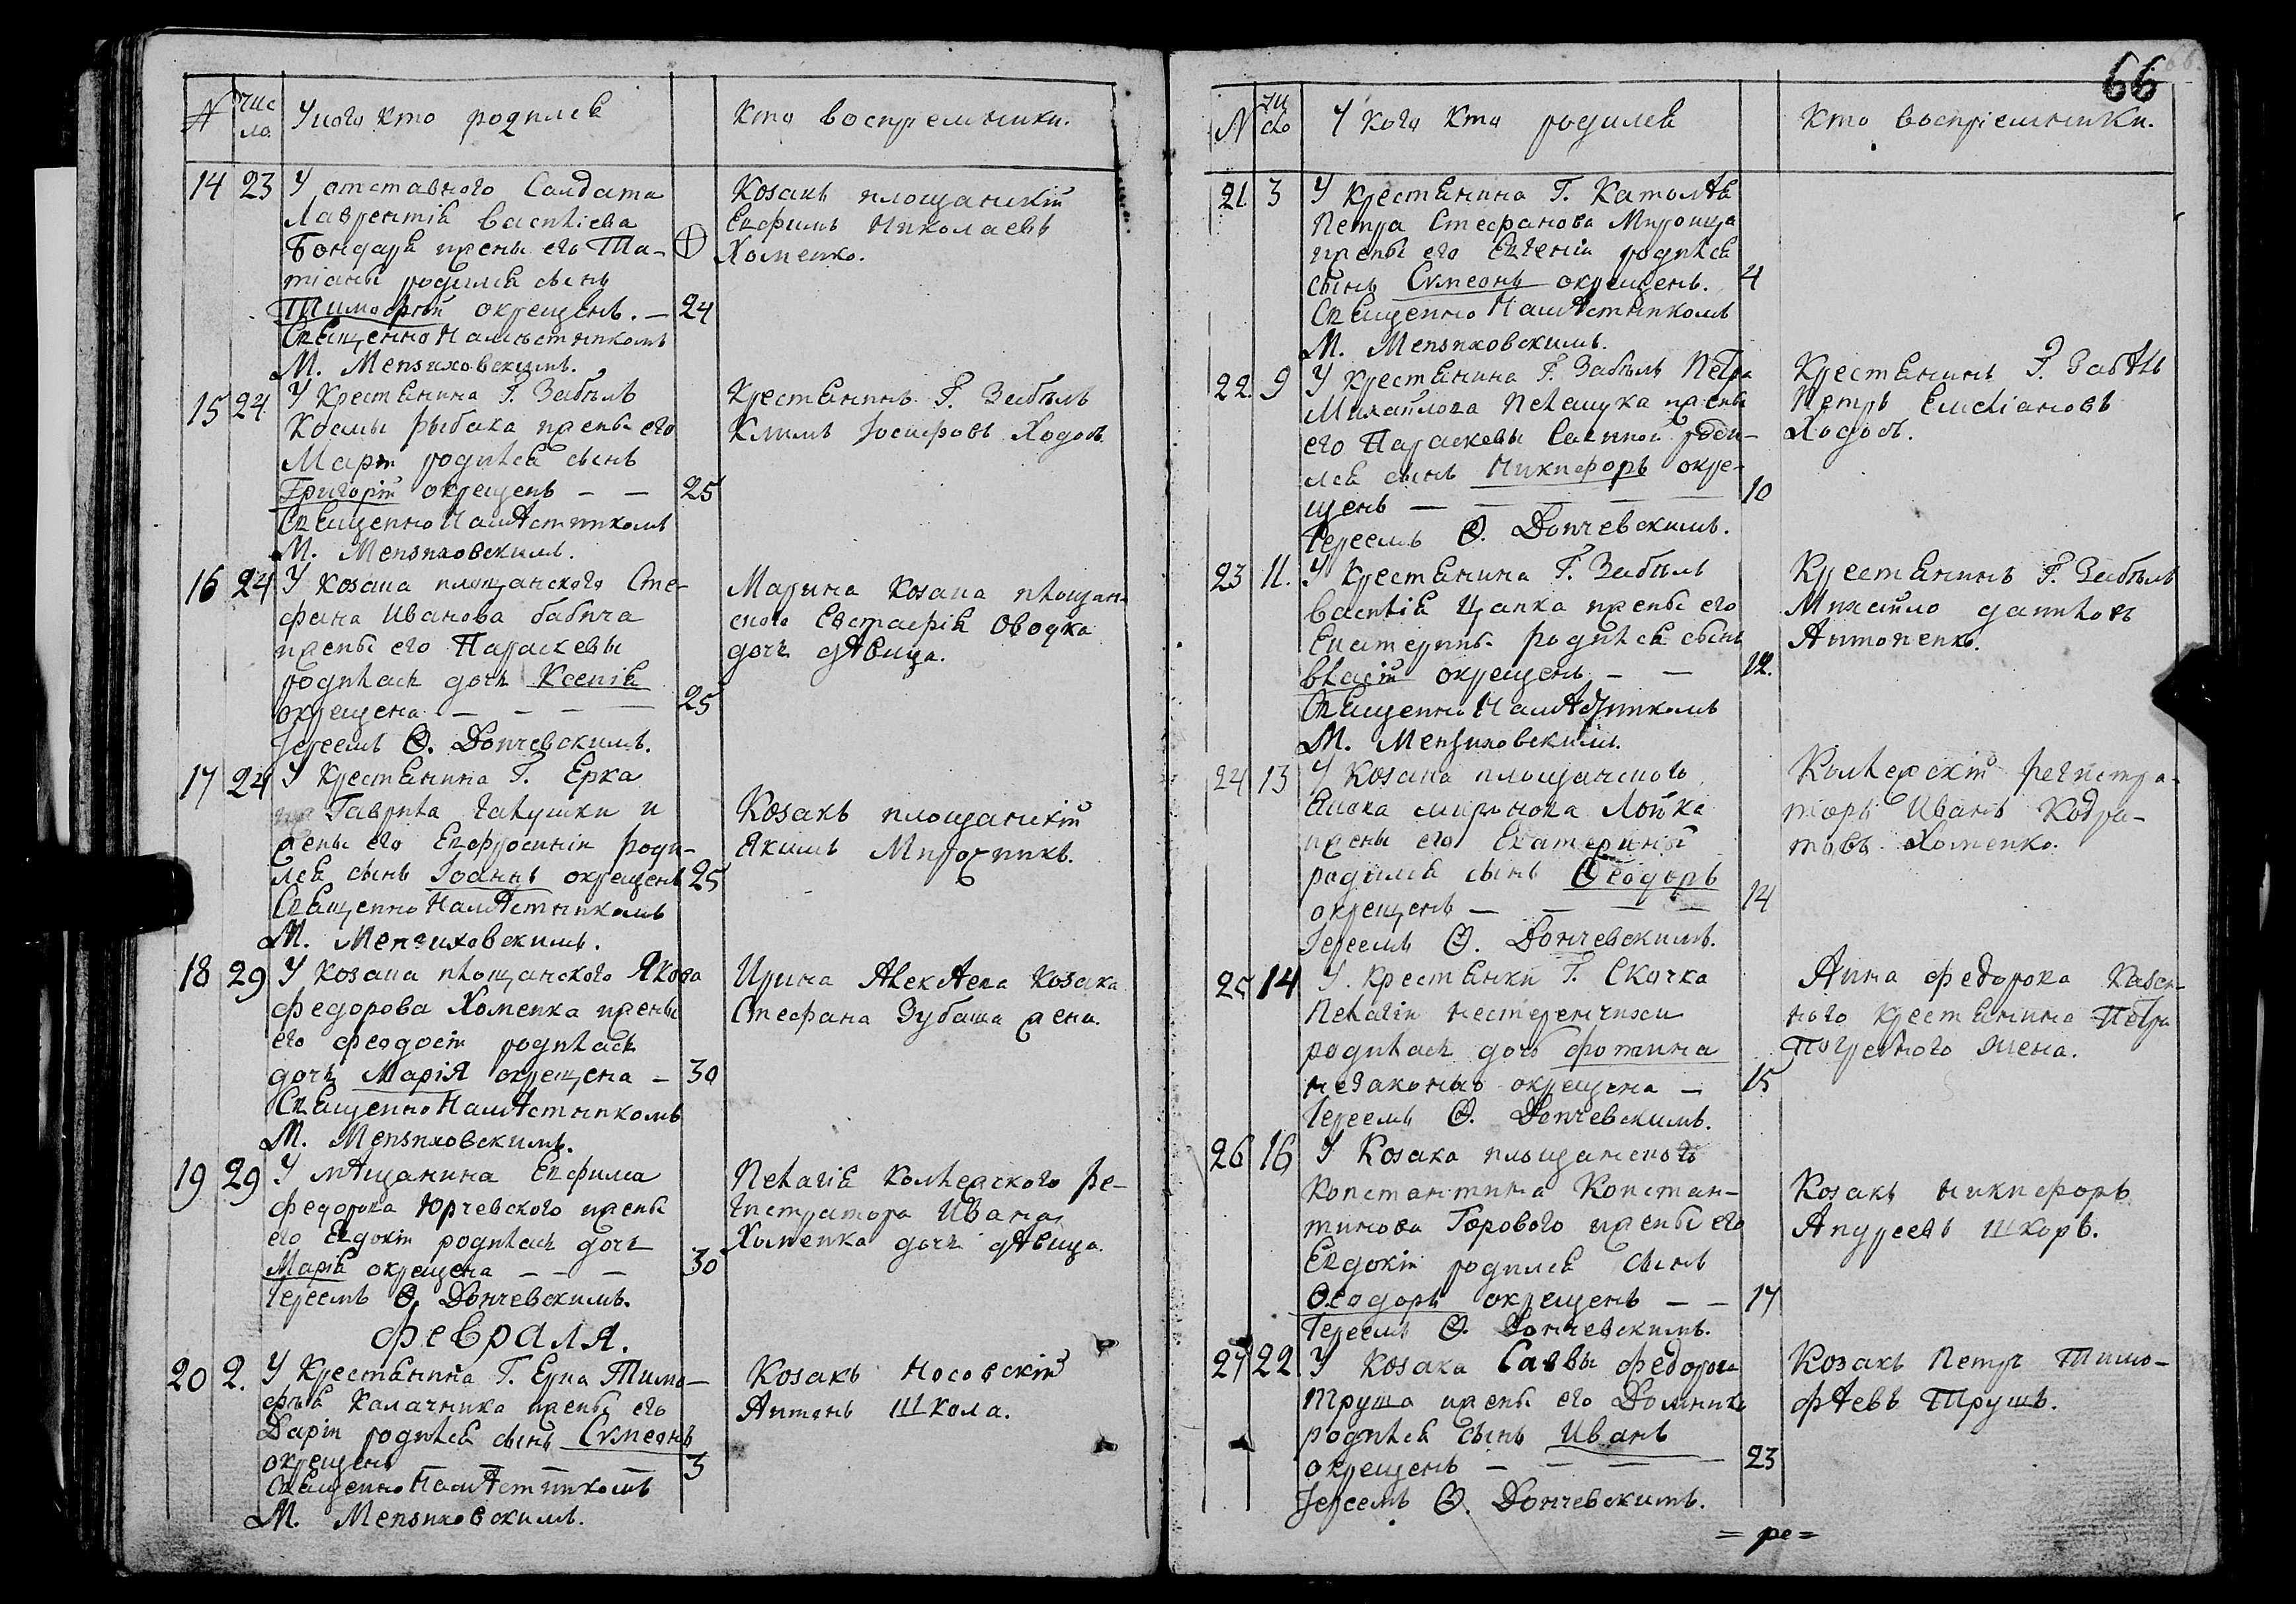 66
N чис
ло У кого кто родился кто воспреемники.
14 23 У отставного Салдата
Лаврентія Василіева
Бондаря жены его Та-
тіаны родился сынъ
Тимофей окрещенъ. — 24
Священно Намѣстникомъ
М. Мензиховскимъ.
Козакъ площанскій
Евфимъ Николаевъ
Хоменко.
15 24 У Крестянина Г. Забѣлѣ
Космы Рыбака жены его
Маріи родился сынъ
Григорій окрещенъ — — 25
Священно Намѣстникомъ
М. Мензиховскимъ.
Крестянинъ Г. Забѣлѣ
Климъ Іосифовъ Ходос.
16 24 У козака площанского Сте-
фана Иванова бабича
жены его Параскевы
родилась дочь Ксенія
окрещена — — — — 25
Іереемъ Ѳ. Дончевскимъ.
Марина козака площан-
ского Евстафія Оводка
дочь дѣвица.
17 24 У крестянина Г. Ерка
Гаврила Галушки и
жены его Евфросиніи роди-
лся сынъ Іоаннъ окрещенъ 25
Священно Намѣстникомъ
М. Мензиховскимъ.
Козакъ площанскій
Якимъ Мирочникъ.
18 29 У козака площанского Якова
федорова Хоменка жены
его феодосіи родилась
дочь Марія окрещена — 30
Священно Намѣстникомъ
М. Мензиховскимъ.
Ирина Алекѣева козака
Стефана Зубаша жена.
19 29 У мѣщанина Евфима
федорова Юрчевского жены
его Евдокіи родилась дочь
Марія окрещена — — — 30
Іереемъ Ѳ. Дончевскимъ.
Пелагія Колежского ре-
гистратора Ивана
Хоменка дочь дѣвица.
февраля.
20 2. У Крестянина Г. Ерка Тимо-
фѣя Калачника жены его
Даріи родился сынъ Сѵмеонъ
окрещенъ — — — — 3
Священно Намѣстникомъ
М. Мензиховскимъ.
Козакъ Носовскій
Антонъ Школа.
N чи
сло У кого кто родился кто воспріемники.
21 3 У крестянина Г. Католѣя
Петра Стефанова Мироша
жены его Евгеніи родился
сынъ Сѵмеонъ окрещенъ. 4
Священно Намѣстникомъ
М. Мензиховскимъ.
22. 9 У Крестянина Г. Забѣлѣ Петра
Михайлова Пелащука жены
его Параскевы Савиной роди-
лся сынъ Никифоръ окре-
щенъ — — — — 10
Іереемъ Ѳ. Дончевскимъ.
Крестянинъ Г. Забѣлѣ
Петръ Емеліановъ
Ходос.
23 11. У Крестянина Г. Забѣлѣ
Василія Цапка жены его
Екатерины родился сынъ
Власій окрещенъ — — 12.
Священно Намѣстникомъ
М. Мензиховскимъ.
Крестянинъ Г. Забѣлѣ
Михайло даниловъ
Антоненко.
24 13 У Козака площанского
Якова смирнова Лойка
жены его Екатерины
родился сынъ Ѳеодоръ
окрещенъ — — — — 14
Іереемъ Ѳ. Дончевскимъ.
Колежскій регистра-
торъ Иванъ Кодра-
товъ Хоменко.
25 14 У. крестянки Г. Скочка
Пелагіи нестеренчихи
родилась дочь фотина
незаконно окрещена — 15
Іереемъ Ѳ. Дончевскимъ.
Анна федорова казен-
ного крестянина Петра
Погребного жена.
26 16 У Козака площанского
Константина Констан-
тинова Горового жены его
Евдокіи родился сынъ
Ѳеодоръ окрещенъ — — 17
Іереемъ Ѳ. Дончевскимъ.
Козакъ никифоръ
Андреевъ шкоръ.
27 22 У козака Саввы федорова
Труша жены его Домники
родился сынъ Иванъ
окрещенъ — — — — 23
Іереемъ Ѳ. Дончевскимъ.
Козакъ Петръ Тимо-
фѣевъ Трушъ.
= ре =